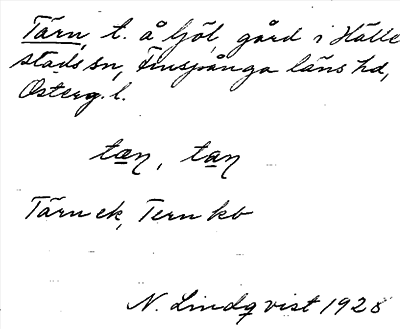 Tärn, t. å ljöl, gård i Hälle
stads sn, Finspånga läns hd,
Österg. l.
tæ̠ɳ, ta̠ɳ
Tärn ek, Tern kb
N. Lindqvist 1928